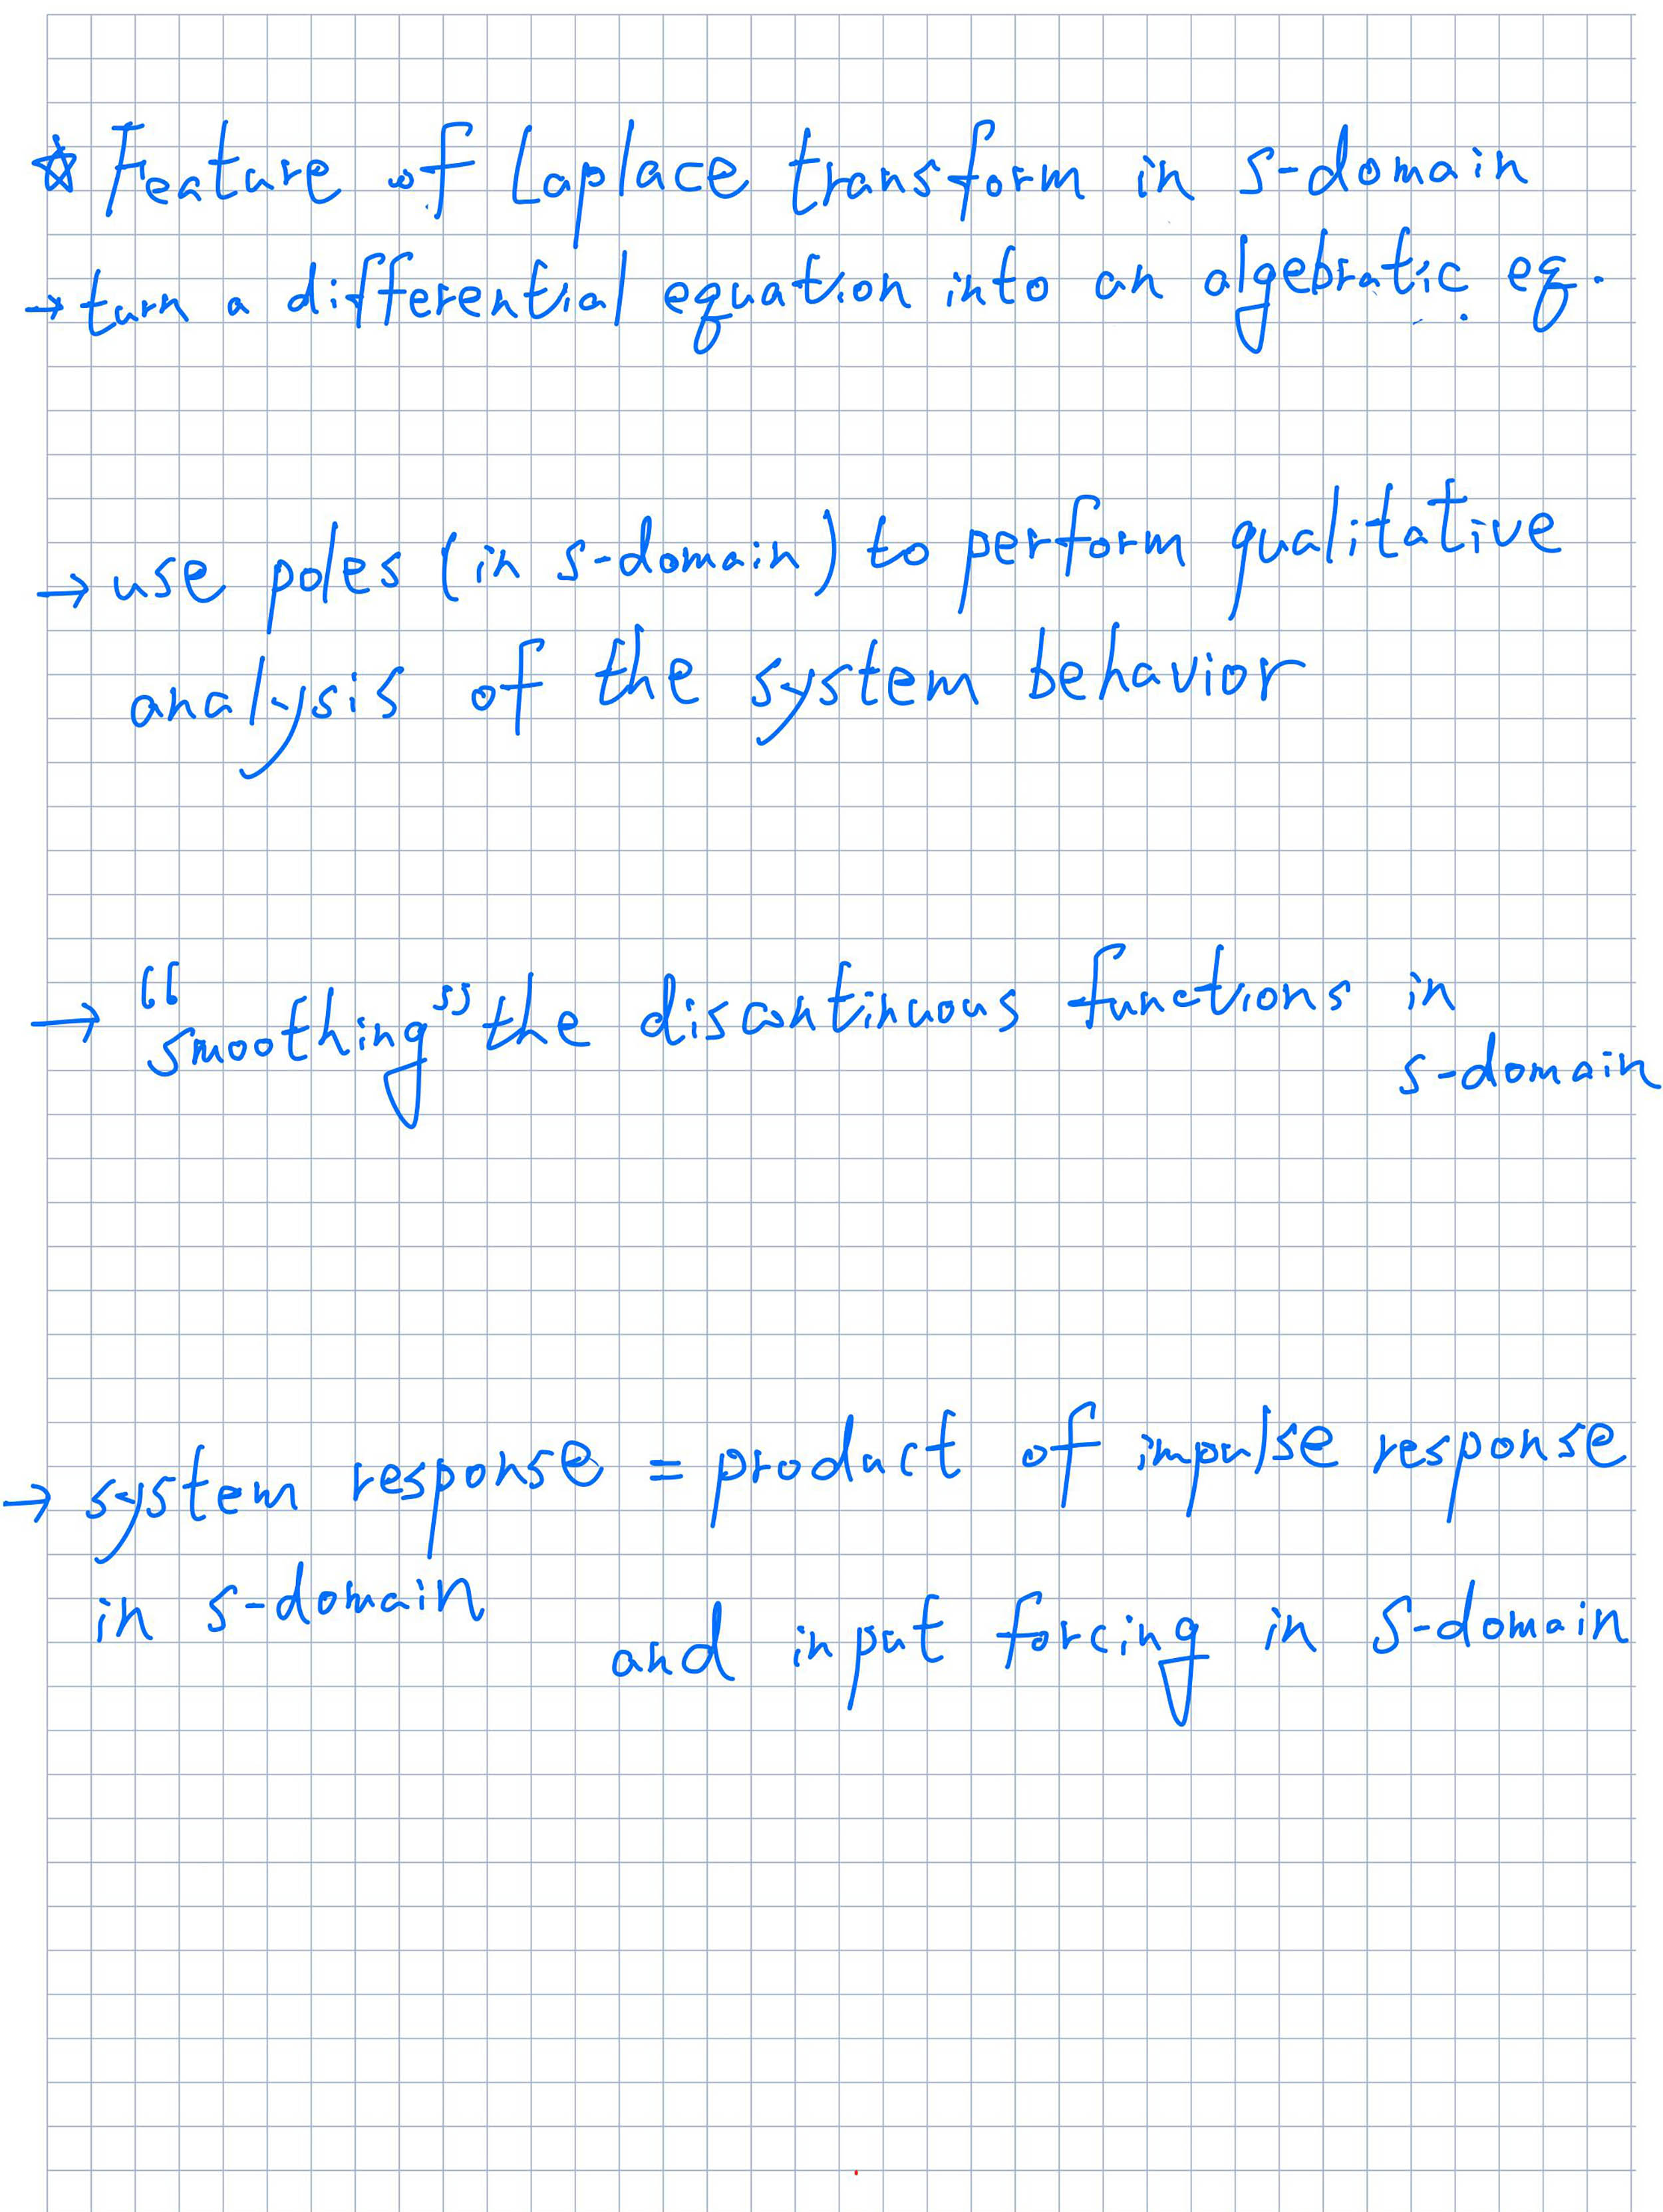 ☆ Feature of Laplace transform in s-domain
→ turn a differential equation into an algebratic eq.
→ use poles (in s-domain) to perform qualitative
analysis of the system behavior
→ "smoothing" the discontinuous functions in
s-domain
→ system response = product of impulse response
in s-domain and input forcing in s-domain